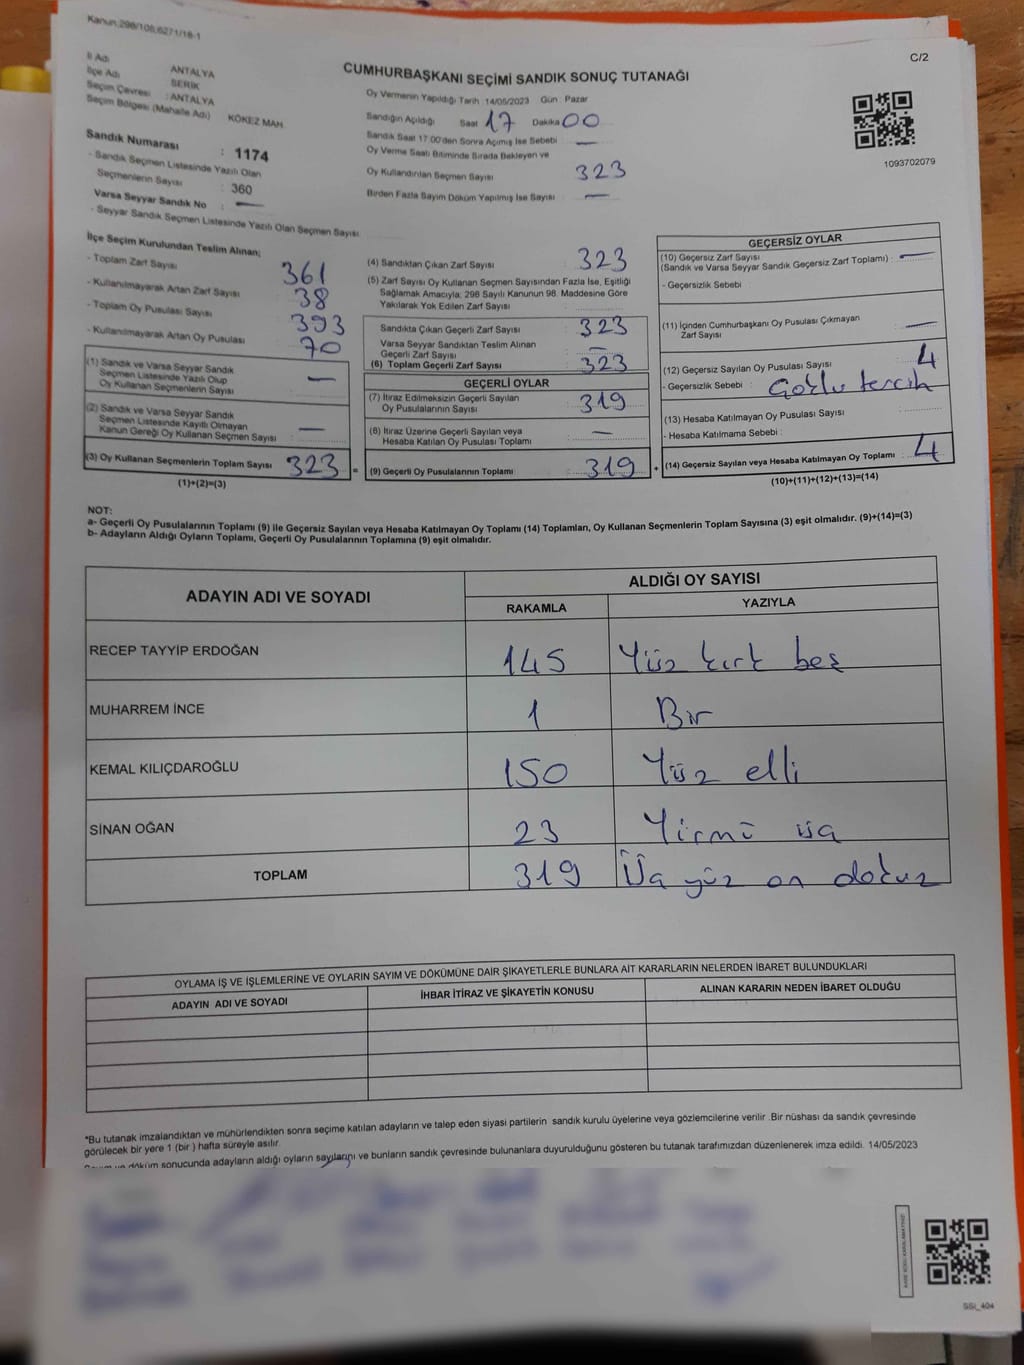 Kanun:298/108,6271/18-1
C/2
İl Adı ANTALYA
İlçe Adı SERİK
Seçim Çevresi : ANTALYA
Seçim Bölgesi (Mahalle Adı) KÖKEZ MAH.
CUMHURBAŞKANI SEÇİMİ SANDIK SONUÇ TUTANAĞI
Oy Vermenin Yapıldığı Tarih 14/05/2023 Gün : Pazar
Sandığın Açıldığı Saat 17 Dakika 00
Sandık Saat 17:00'den Sonra Açılmış İse Sebebi —
Oy Verme Saati Bitiminde Sırada Bekleyen ve
Oy Kullandırılan Seçmen Sayısı 323
Birden Fazla Sayım Döküm Yapılmış İse Sayısı —
1093702079
Sandık Numarası : 1174
- Sandık Seçmen Listesinde Yazılı Olan
Seçmenlerin Sayısı : 360
Varsa Seyyar Sandık No : —
- Seyyar Sandık Seçmen Listesinde Yazılı Olan Seçmen Sayısı
İlçe Seçim Kurulundan Teslim Alınan;
- Toplam Zarf Sayısı 361
- Kullanılmayarak Artan Zarf Sayısı 38
- Toplam Oy Pusulası Sayısı 393
- Kullanılmayarak Artan Oy Pusulası 70
(1) Sandık ve Varsa Seyyar Sandık
Seçmen Listesinde Yazılı Olup
Oy Kullanan Seçmenlerin Sayısı —
(2) Sandık ve Varsa Seyyar Sandık
Seçmen Listesinde Kayıtlı Olmayan
Kanun Gereği Oy Kullanan Seçmen Sayısı —
(3) Oy Kullanan Seçmenlerin Toplam Sayısı 323
(1)+(2)=(3)
=
(4) Sandıktan Çıkan Zarf Sayısı 323
(5) Zarf Sayısı Oy Kullanan Seçmen Sayısından Fazla İse, Eşitliği
Sağlamak Amacıyla, 298 Sayılı Kanunun 98. Maddesine Göre
Yakılarak Yok Edilen Zarf Sayısı
Sandıkta Çıkan Geçerli Zarf Sayısı 323
Varsa Seyyar Sandıktan Teslim Alınan
Geçerli Zarf Sayısı —
(6) Toplam Geçerli Zarf Sayısı 323
GEÇERLİ OYLAR
(7) İtiraz Edilmeksizin Geçerli Sayılan
Oy Pusulalarının Sayısı 319
(8) İtiraz Üzerine Geçerli Sayılan veya
Hesaba Katılan Oy Pusulası Toplamı —
(9) Geçerli Oy Pusulalarının Toplamı 319
+
GEÇERSİZ OYLAR
(10) Geçersiz Zarf Sayısı
(Sandık ve Varsa Seyyar Sandık Geçersiz Zarf Toplamı) : —
- Geçersizlik Sebebi :
(11) İçinden Cumhurbaşkanı Oy Pusulası Çıkmayan
Zarf Sayısı —
(12) Geçersiz Sayılan Oy Pusulası Sayısı 4
- Geçersizlik Sebebi : Çoklu tercih
(13) Hesaba Katılmayan Oy Pusulası Sayısı
- Hesaba Katılmama Sebebi :
(14) Geçersiz Sayılan veya Hesaba Katılmayan Oy Toplamı 4
(10)+(11)+(12)+(13)=(14)
NOT:
a- Geçerli Oy Pusulalarının Toplamı (9) ile Geçersiz Sayılan veya Hesaba Katılmayan Oy Toplamı (14) Toplamları, Oy Kullanan Seçmenlerin Toplam Sayısına (3) eşit olmalıdır. (9)+(14)=(3)
b- Adayların Aldığı Oyların Toplamı, Geçerli Oy Pusulalarının Toplamına (9) eşit olmalıdır.
ADAYIN ADI VE SOYADI
ALDIĞI OY SAYISI
RAKAMLA YAZIYLA
RECEP TAYYİP ERDOĞAN 145 Yüz kırk beş
MUHARREM İNCE 1 Bir
KEMAL KILIÇDAROĞLU 150 Yüz elli
SİNAN OĞAN 23 Yirmi üç
TOPLAM 319 Üç yüz on dokuz
OYLAMA İŞ VE İŞLEMLERİNE VE OYLARIN SAYIM VE DÖKÜMÜNE DAİR ŞİKAYETLERLE BUNLARA AİT KARARLARIN NELERDEN İBARET BULUNDUKLARI
ADAYIN ADI VE SOYADI İHBAR İTİRAZ VE ŞİKAYETİN KONUSU ALINAN KARARIN NEDEN İBARET OLDUĞU
*Bu tutanak imzalandıktan ve mühürlendikten sonra seçime katılan adayların ve talep eden siyasi partilerin sandık kurulu üyelerine veya gözlemcilerine verilir .Bir nüshası da sandık çevresinde
görülecek bir yere 1 (bir ) hafta süreyle asılır.
döküm sonucunda adayların aldığı oyların sayılarını ve bunların sandık çevresinde bulunanlara duyurulduğunu gösteren bu tutanak tarafımızdan düzenlenerek imza edildi. 14/05/2023
SSİ_404